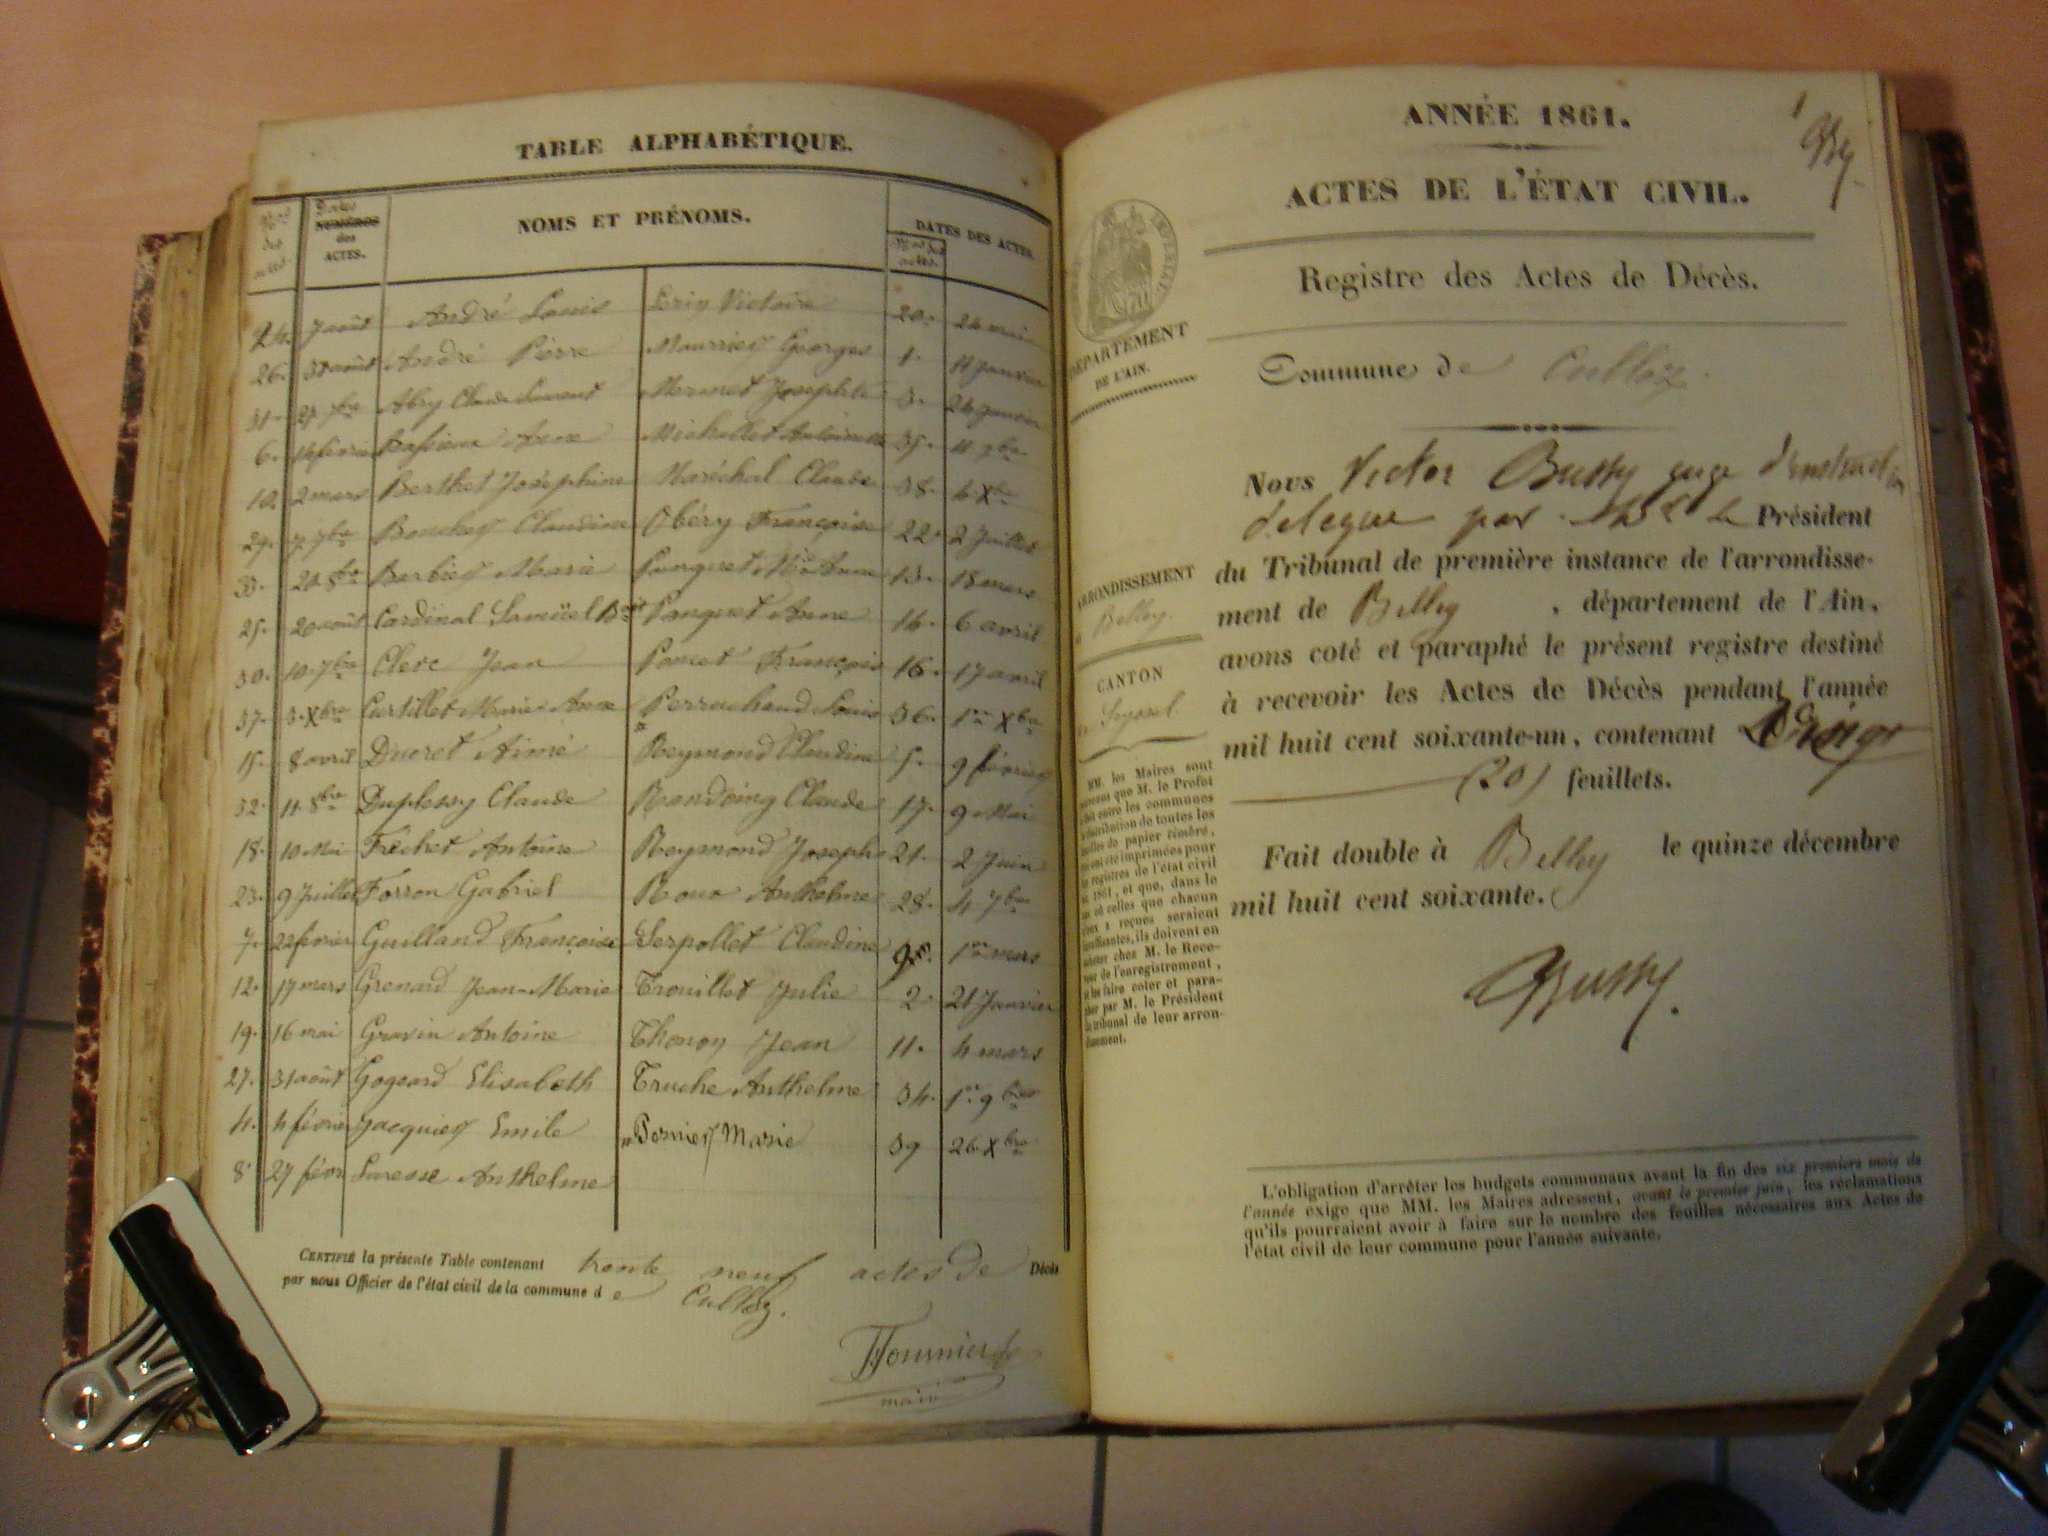 TABLE ALPHABÉTIQUE.
Nos des actes.
Dates
NUMÉROS des ACTES.
NOMS ET PRÉNOMS.
DATES DES ACTES.
Nos des actes.
24. 7 août André Louis
26. août André Pierre
31. 27 7bre Abry Claude Laurent
6. 14 février Anne
10. 2 mars Berthet Joséphine
29. 7 7bre Claudine
33. 8bre Barbier Marie
25. 20 août Cardinal Samüel Bte
30. 10. 7bre Clerc Jean
37. 3. Xbre Curtillet Marie Anne
15. 8 avril Ducret Aimé
32. 11. 8bre Duplessy Claude
18. 10 Mai Fréchet Antoine
23. 9 Juillet Forron Gabriel
7. 22 février Guilland Françoise
12. 17 mars Grenard Jean-Marie
19. 16 mai Gravin Antoine
27. 31 août Gogeard Elisabeth
4. 4 février Jacquier Emile
8. 27 févr Anthelme
Victoire 20. 24 mai
Mourrier Georges 1. 11 janvier
Mermet Josephte 3. 24 janvier
Michallet Antoinette 35. 11 9bre
Maréchal Claude 38. 4 Xbre
Obéry Françoise 22. 2 Juillet
Ponguet Mie Anne 13. 18 mars
Panguet Anne 14. 6 avril
Poncet François 16. 17 avril
Perrachaud Louis 36. 1er Xbre
Reymond Claudine 5. 9 février
Claude 17. 9 Mai
Reymond Josephe 21. 2 Juin
Roux Anthelme 28. 4 7bre
Serpollet Claudine 9. 1er mars
Trouillet Julie 2. 21 Janvier
Thonon Jean 11. 4 mars
Truche Anthelme 34. 1er 9bre
Marie 39 26 Xbre
CERTIFIÉ la présente Table contenant trente neuf actes de Décès
par nous Officier de l'état civil de la commune de Culloz.
Fournier
maire
1
ANNÉE 1861.
ACTES DE L'ÉTAT CIVIL.
Registre des Actes de Décès.
Commune de Culloz.
DÉPARTEMENT
DE L'AIN.
ARRONDISSEMENT
Belley.
CANTON
Seyssel.
Nous Victor Bussy juge d'instruction
délégué par Président
du Tribunal de première instance de l'arrondisse-
ment de Belley, département de l'Ain,
avons coté et paraphé le présent registre destiné
à recevoir les Actes de Décès pendant l'année
mil huit cent soixante-un, contenant Vingt
(20) feuillets.
Fait double à Belley le quinze décembre
mil huit cent soixante.
Bussy.
MM. les Maires sont
que M. le Préfet
entre les communes
distribution de toutes les
feuilles de papier timbré,
été imprimées pour
registres de l'état civil
1861, et que, dans le
où celles que chacun
reçues seraient
insuffisantes, ils doivent en
acheter chez M. le Rece-
veur de l'enregistrement,
les faire coter et para-
pher par M. le Président
tribunal de leur arron-
dissement.
L'obligation d'arrêter les budgets communaux avant la fin des six premiers mois de
l'année exige que MM. les Maires adressent, avant le premier juin, les réclamations
qu'ils pourraient avoir à faire sur le nombre des feuilles nécessaires aux Actes de
l'état civil de leur commune pour l'année suivante.